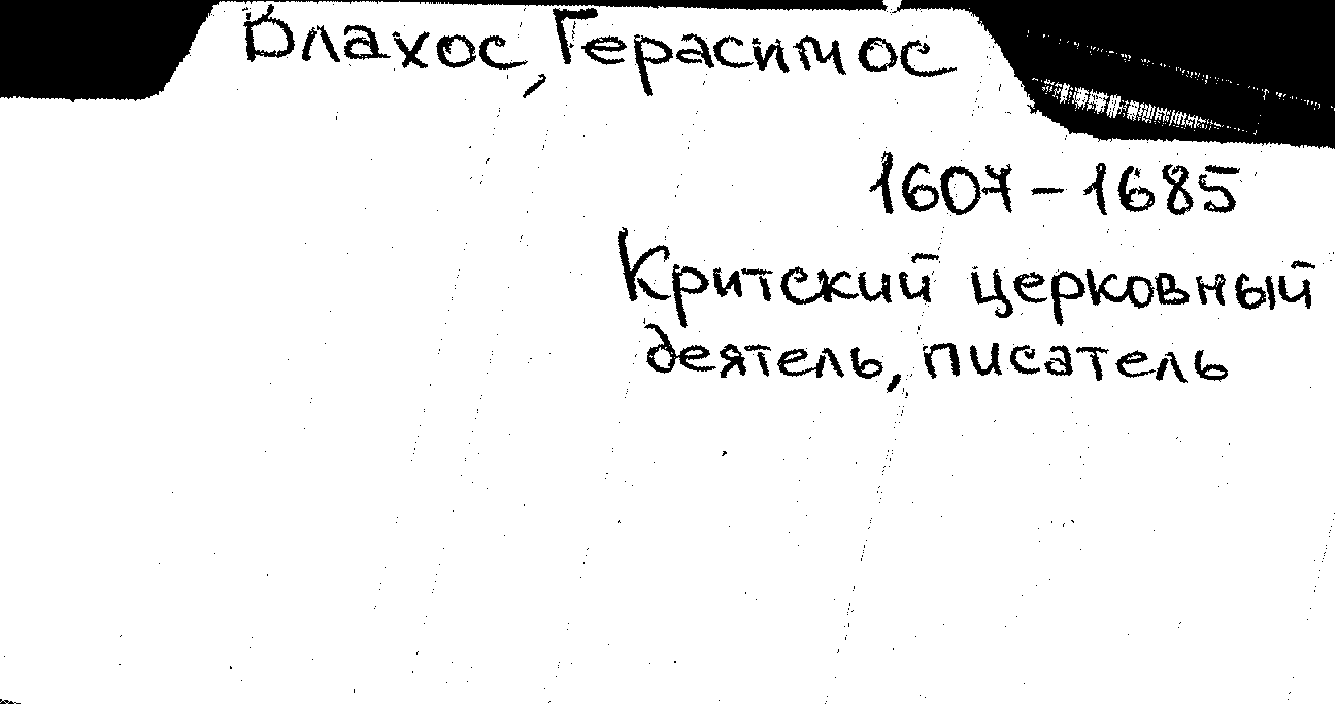 Влахос, Герасимос
1607-1685
Критский церковный
деятель, писатель